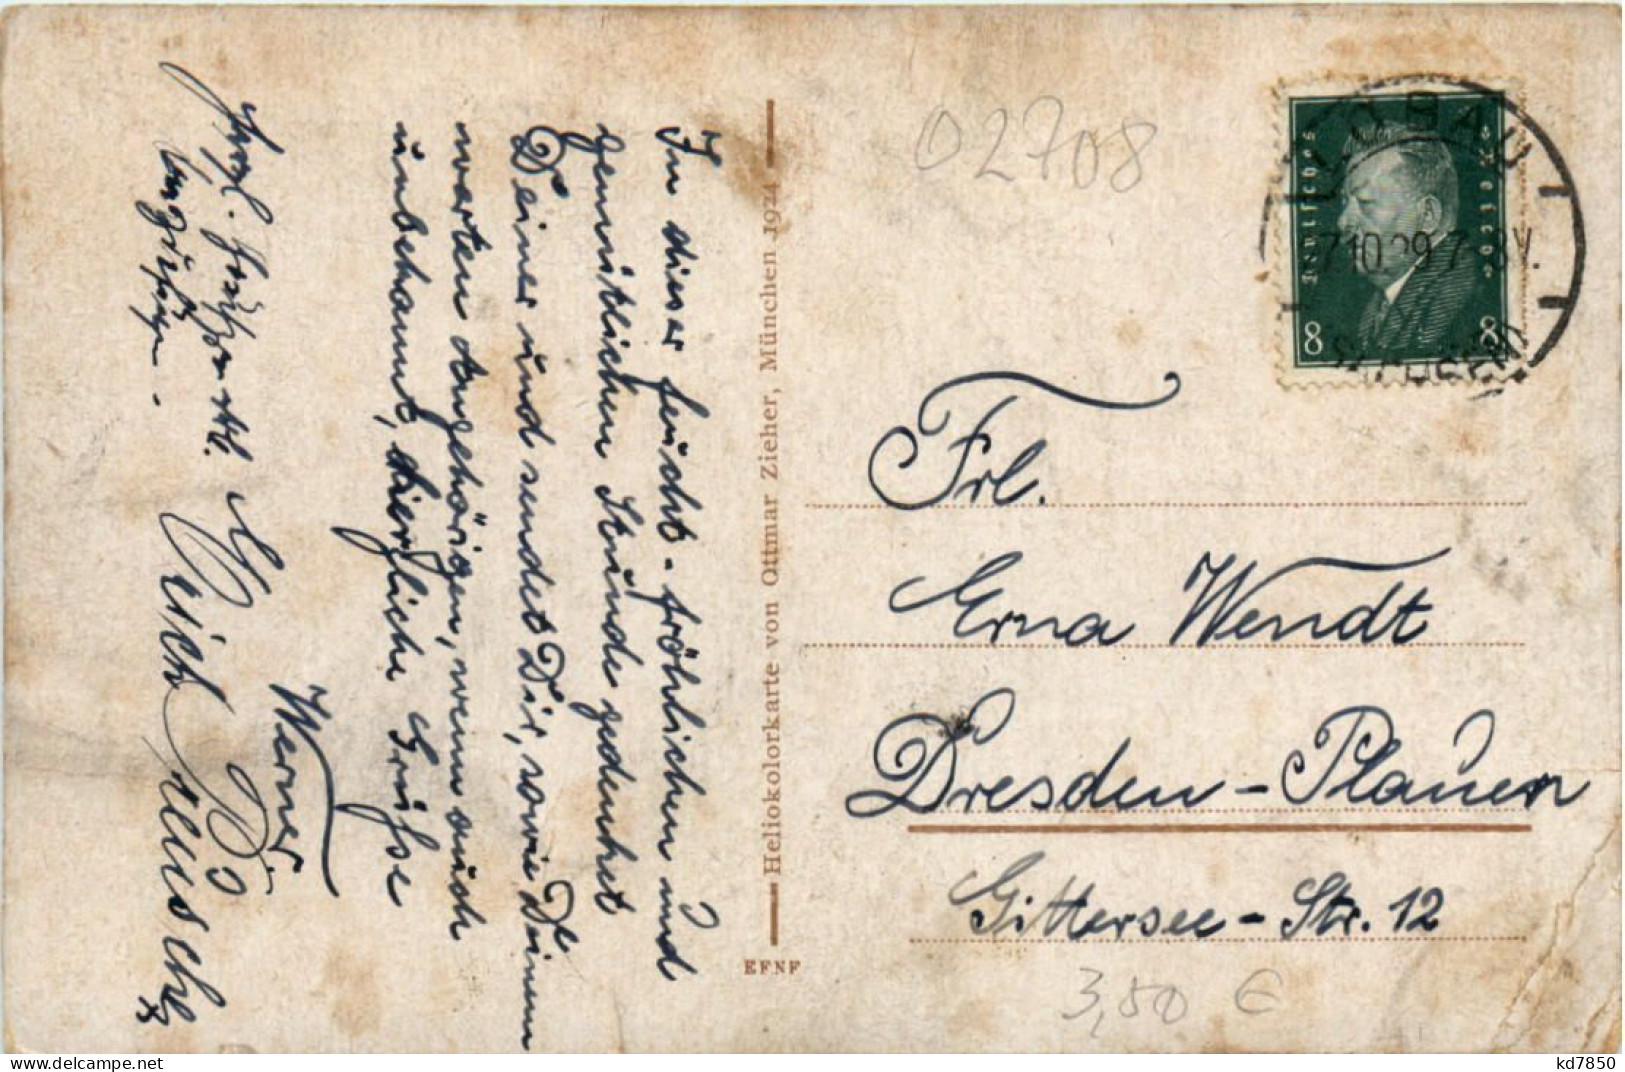 In dieser feucht-fröhlichen und
gemütlichen Stunde gedenket
Deiner und sendet Dir, sowie Deinen
werten Angehörigen, wenn auch
unbekannt, die herzliche Grüsse
Werner.
Erich
Heliokolorkarte von Ottmar Zieher, München 1924
EFNF
02708
Deutsches Reich
8 8
LÖBAU
7.10.29.7-8V.
(SACHSEN)
Frl.
Erna Wendt
Dresden-Plauen
Gittersee-Str. 12
3,50 €
kd7850